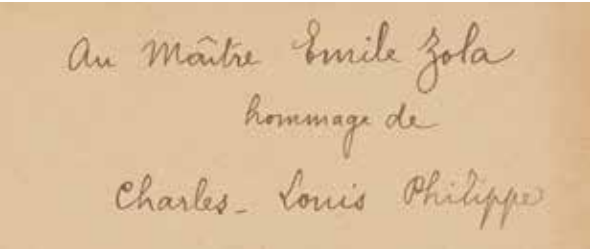 Au Maître Emile Zola
hommage de
Charles-Louis Philippe